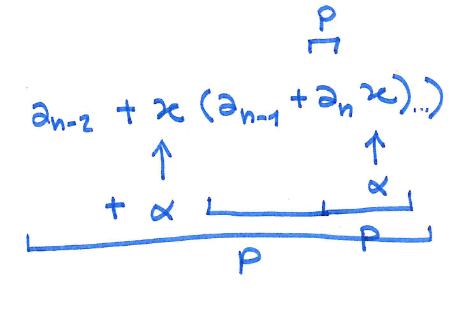 P
a_{n-2} + x (a_{n-1} + a_n x)...)
α
+ α
P
P